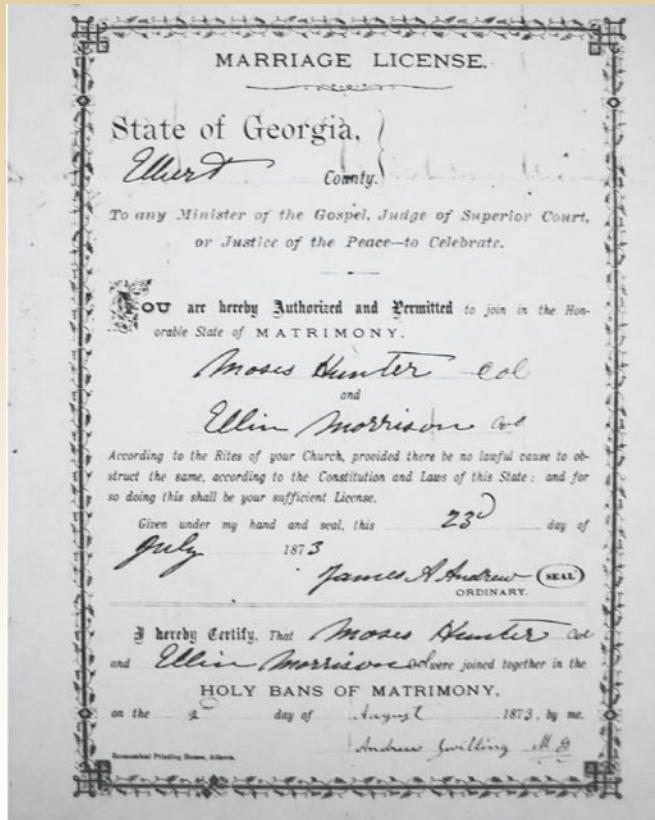 MARRIAGE LICENSE.
State of Georgia,
Elbert County.
To any Minister of the Gospel, Judge of Superior Court,
or Justice of the Peace—to Celebrate.
YOU are hereby Authorized and Permitted to join in the Hon-
orable State of MATRIMONY.
Moses Hunter Col
and
Ellin Morrison Col
According to the Rites of your Church, provided there be no lawful cause to ob-
struct the same, according to the Constitution and Laws of this State; and for
so doing this shall be your sufficient License.
Given under my hand and seal, this 23d day of
July 1873
James A Andrew SEAL
ORDINARY.
I hereby Certify, That Moses Hunter Col
and Ellin Morrison Col were joined together in the
HOLY BANS OF MATRIMONY,
on the day of August 1873, by me.
Andrew M G
Economical Printing House, Atlanta.